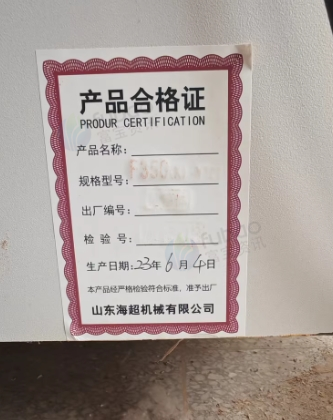 产品合格证
PRODUR CERTIFICATION
产品名称:
规格型号:
出厂编号:
检 验 号:
生产日期:23年6月4日
本产品经严格检验符合标准、准予出厂
山东海超机械有限公司